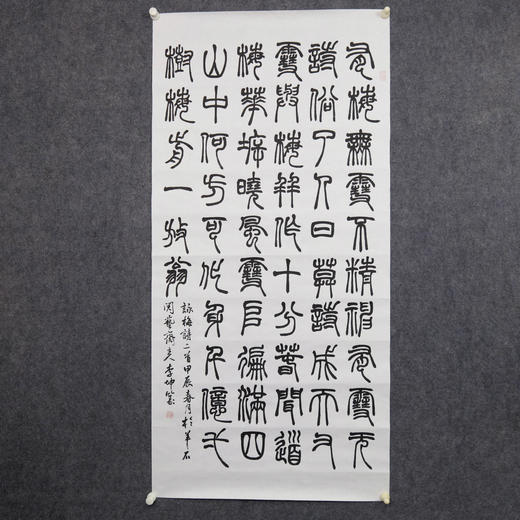 有梅無雪不精神有雪无
詩俗了人日暮詩成天又
雪與梅併作十分春聞道
梅華坼曉風雪𠂤徧滿四
山中何方可化身千億弌
樹梅前一放翁
詠梅詩二首甲辰春月於羊石
藝齋主李坤篆